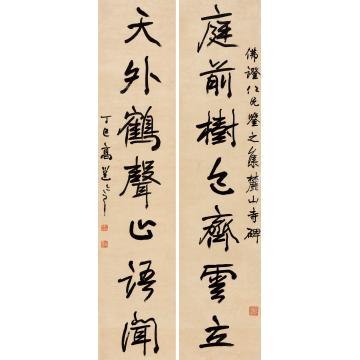 佛證仁兄鑒之集麓山寺碑
庭前樹色齊雲立
天外鶴聲 語聞
丁巳高邕之